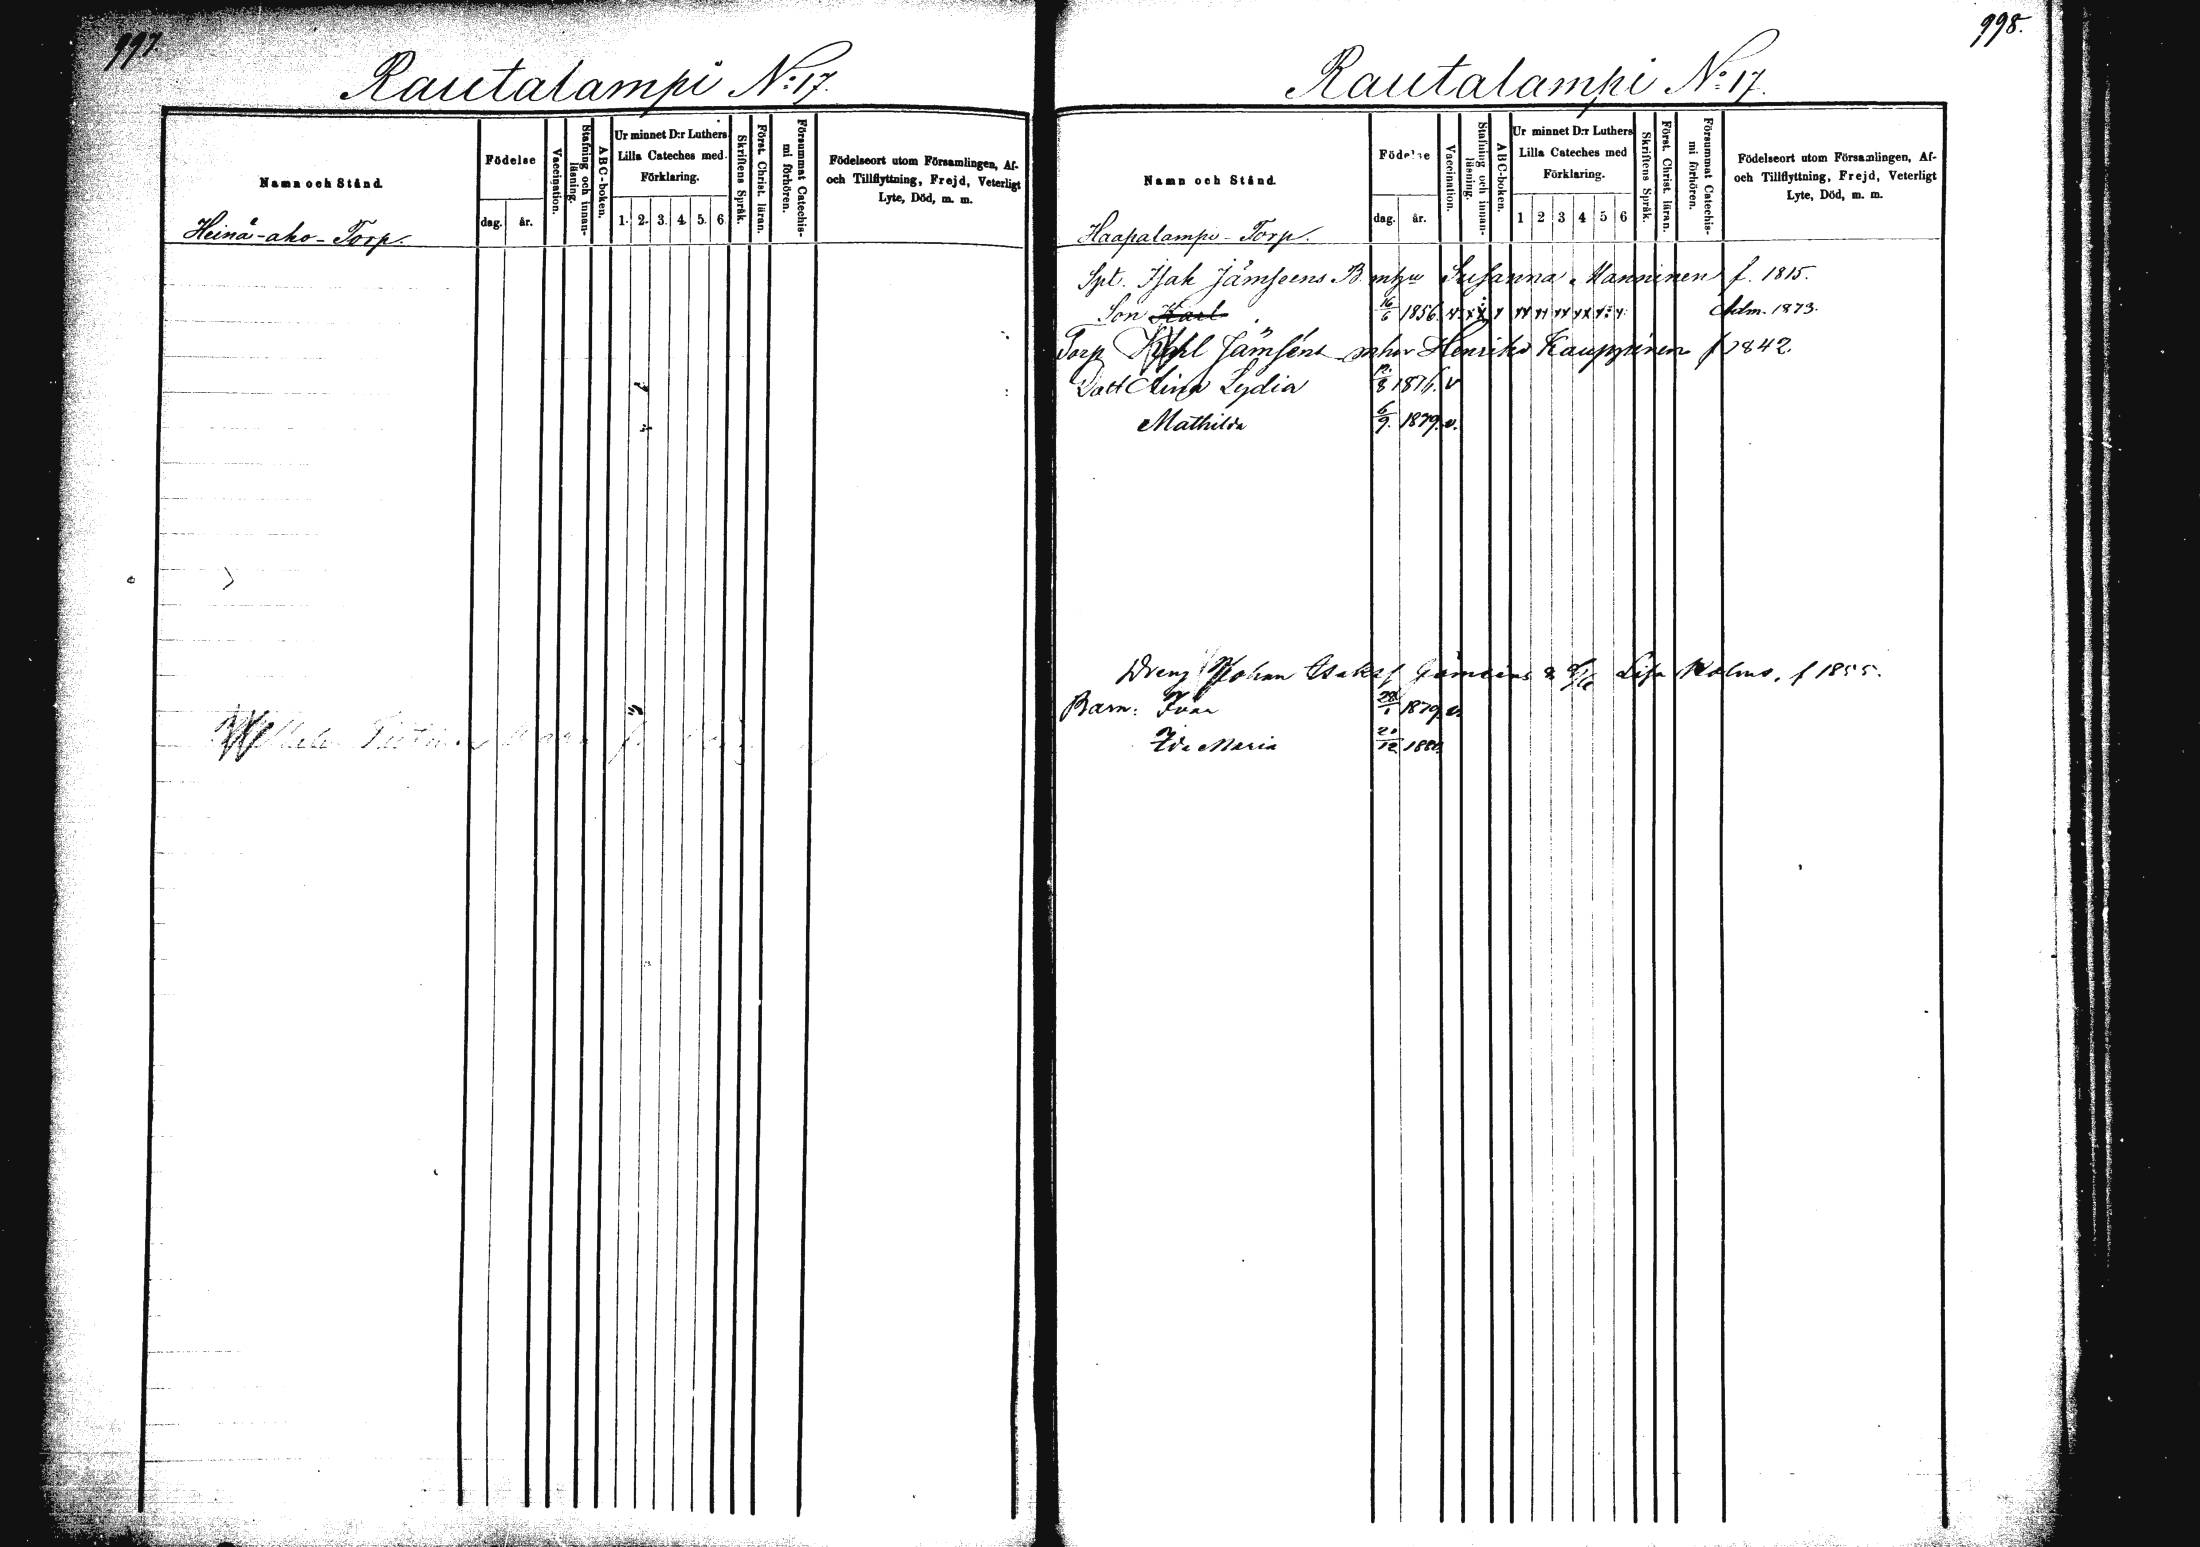 997.
Rautalampi N:17.
Namn och Stånd.
Födelse
dag. år.
Vaccination.
Stafning och innan-
läsning.
ABC-boken.
Ur minnet D:r Luthers
Lilla Cateches med
Förklaring.
1. 2. 3. 4. 5. 6
Skriftens Språk.
Först. Christ. läran.
Försummat Catechis-
mi förhören.
Födelseort utom Församlingen, Af-
och Tillflyttning, Frejd, Veterligt
Lyte, Död, m. m.
Heinä-aho-Torp.
998.
Rautalampi N:o 17.
Namn och Stånd.
Födelse
dag. år.
Vaccination.
Stafning och innan-
läsning.
ABC-boken.
Ur minnet D:r Luthers
Lilla Cateches med
Förklaring.
1 2 3 4 5 6
Skriftens Språk.
Först. Christ läran.
Försummat Catechis-
mi förhören.
Födelseort utom Församlingen, Af-
och Tillflyttning, Frejd, Veterligt
Lyte, Död, m. m.
Haapalampi-Torp.
Spt. Isak Jämsens Susanna Manninen f. 1815.
Son Karl 16/6 1856. Adm. 1873.
Torp Karl Jämsens Henrika Kauppinen f 1842.
Dott Aina Lydia 8 1876. v
Mathilda 6/9. 1879. v.
Dreng Johan Isaksf Lisa f 1855.
Barn: Ivar 28/1 1879. v.
Ida Maria 20/12 1880.